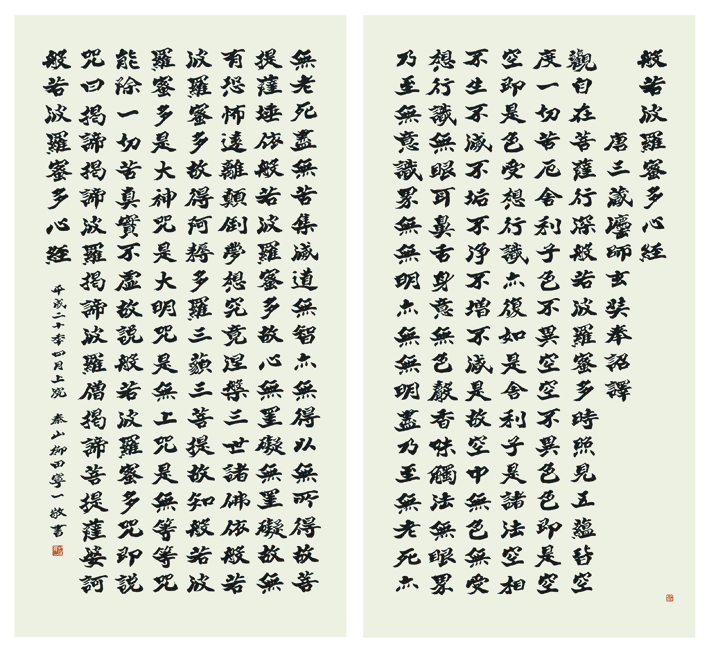 般若波羅蜜多心經
唐三藏灋師玄奘奉詔譯
觀自在菩薩行深般若波羅蜜多時照見五蘊皆空
度一切苦厄舍利子色不異空空不異色色即是空
空即是色受想行識亦復如是舍利子是諸法空相
不生不滅不垢不淨不增不減是故空中無色無受
想行識無眼耳鼻舌身意無色聲香味觸法無眼界
乃至無意識界無無明亦無無明盡乃至無老死亦
無老死盡無苦集滅道無智亦無得以無所得故菩
提薩埵依般若波羅蜜多故心無罣礙無罣礙故無
有恐怖遠離顛倒夢想究竟涅槃三世諸佛依般若
波羅蜜多故得阿耨多羅三藐三菩提故知般若波
羅蜜多是大神咒是大明咒是無上咒是無等等咒
能除一切苦真實不虛故說般若波羅蜜多咒即說
咒曰揭諦揭諦波羅揭諦波羅僧揭諦菩提薩婆訶
般若波羅蜜多心經 平成二十年四月上浣 泰山柳田寧一敬書